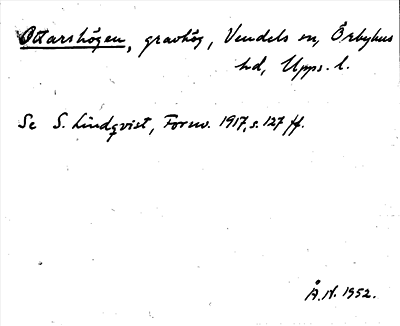 Ottarshögen, gravhög, Vendels sn, Örbyhus
hd, Upps. l.
Se S. Lindqvist, Fornv. 1917, s. 127 ff.
Å.N. 1952.